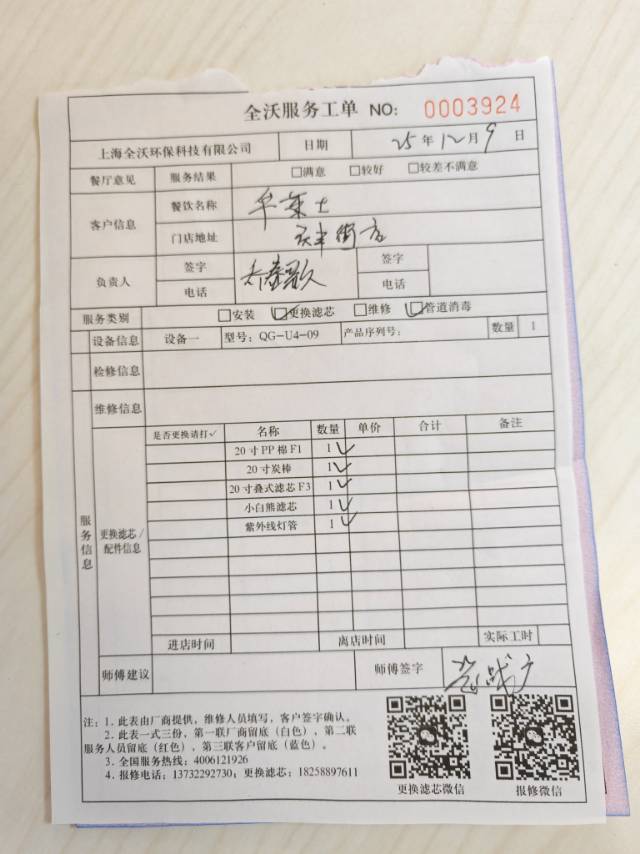 全沃服务工单 NO: 0003924
上海全沃环保科技有限公司 日期 25 年 12 月 9 日
餐厅意见 服务结果 □满意 □较好 □较差不满意
客户信息 餐饮名称
门店地址 街店
负责人 签字 签字
电话 电话
服务类别 □安装 ☑更换滤芯 □维修 ☑管道消毒
设备信息 设备一 型号: QG-U4-09 产品序列号: 数量 1
检修信息
维修信息
服务信息 更换滤芯/配件信息
是否更换请打✓ 名称 数量 单价 合计 备注
20寸PP棉F1 1 ✓
20寸炭棒 1 ✓
20寸叠式滤芯F3 1 ✓
小白熊滤芯 1 ✓
紫外线灯管 1 ✓
进店时间 离店时间 实际工时
师傅建议 师傅签字
注: 1. 此表由厂商提供, 维修人员填写, 客户签字确认。
2. 此表一式三份, 第一联厂商留底 (白色), 第二联
服务人员留底 (红色), 第三联客户留底 (蓝色)。
3. 全国服务热线: 4006121926
4. 报修电话: 13732292730; 更换滤芯: 18258897611
更换滤芯微信 报修微信